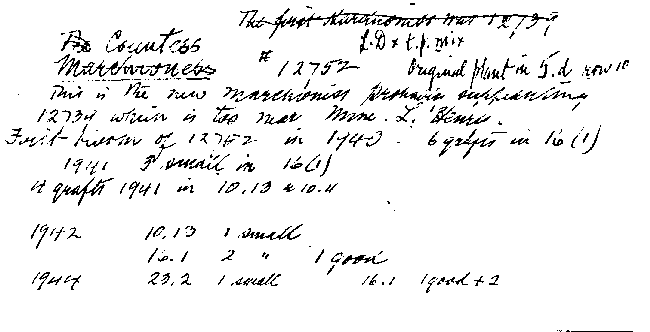 The first Marchioness was 12,739
The Countess L.D x t.p. mix
Marchioness # 12752 Original plant in 5.d, row 10
This is the new marchioness supplanting
12739 which is too near Mme. L. Henri.
First bloom of 12752 in 1943. 6 grafts in 16(1)
1941 small in 16(1)
4 grafts 1941 in 10.13 & 10.4
1942 10.13 1 small
16.1 2 " 1 good
1944 23.2 1 small 16.1 1 good + 2